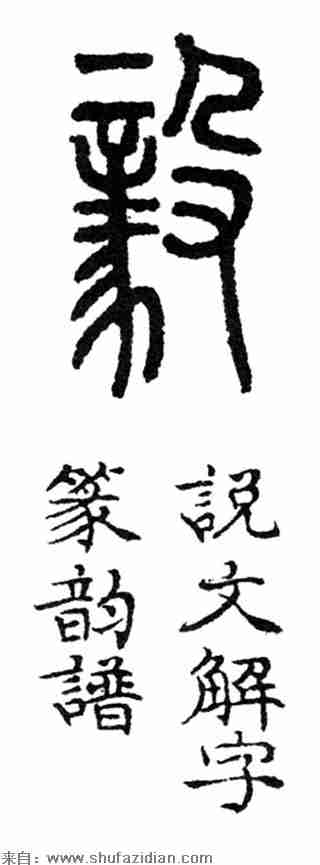 毅
説文解字
篆韵譜
来自：www.shufazidian.com